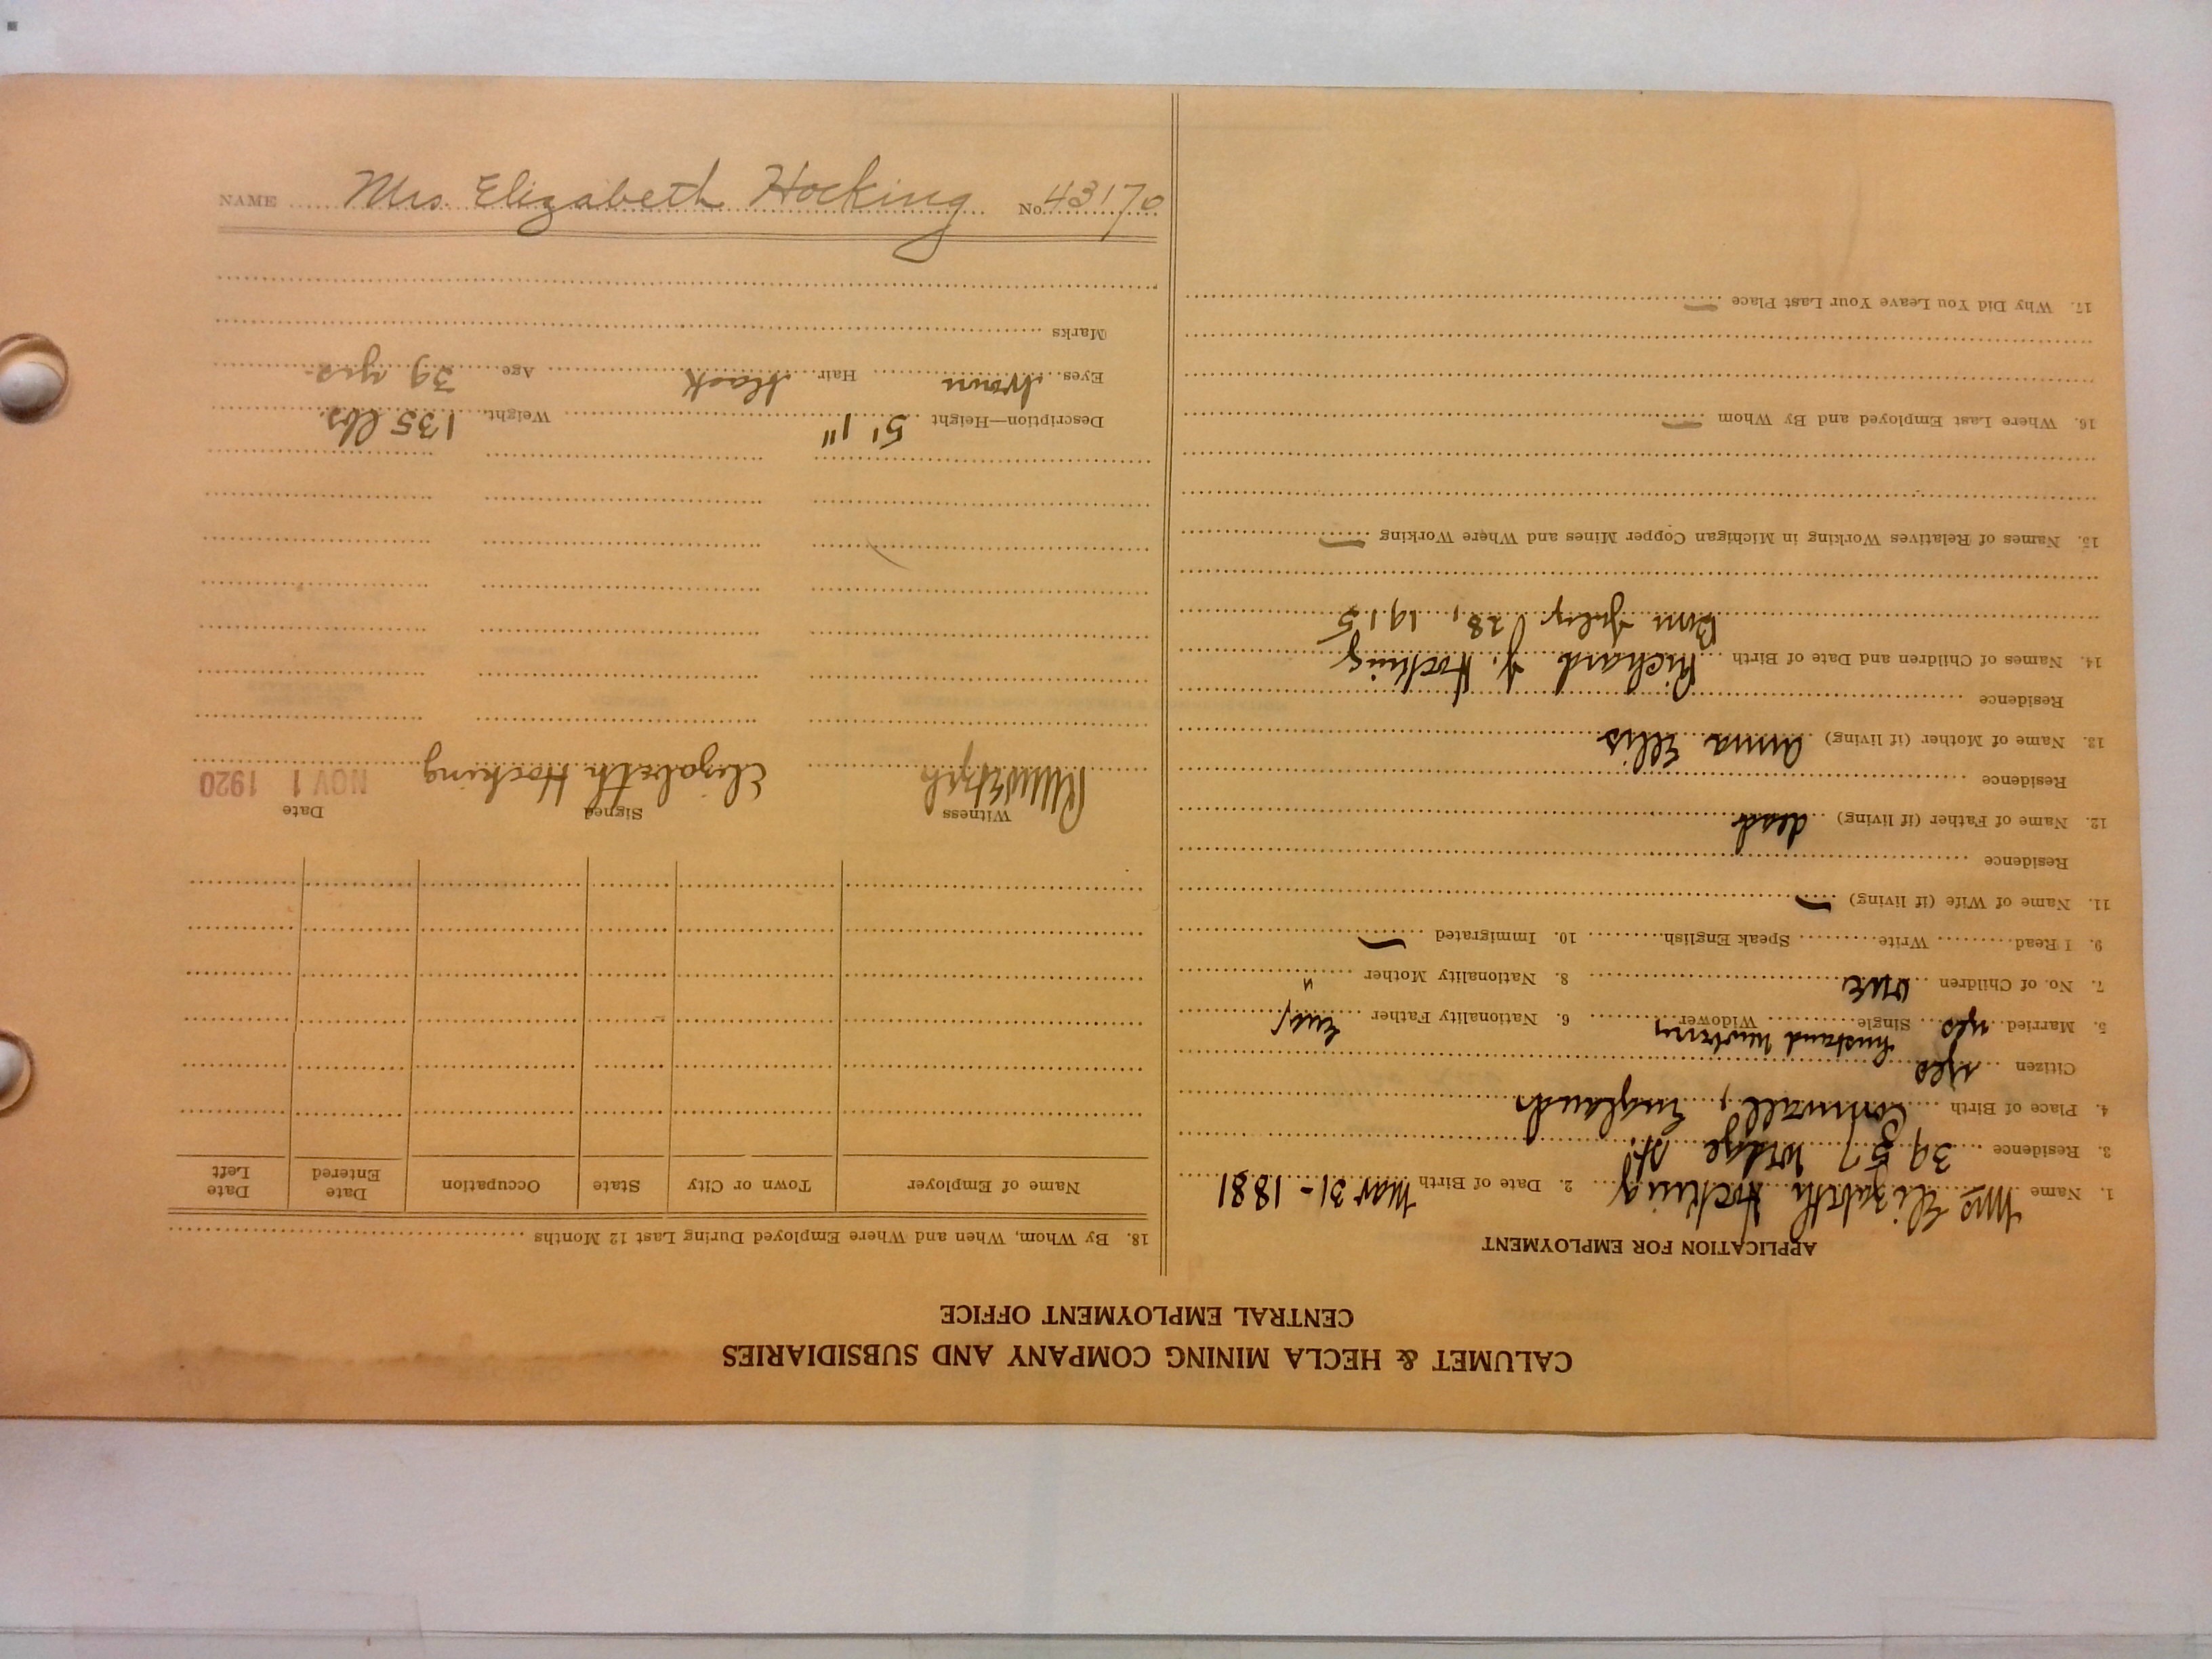 CALUMET & HECLA MINING COMPANY AND SUBSIDIARIES
CENTRAL EMPLOYMENT OFFICE
APPLICATION FOR EMPLOYMENT
1. Name Mrs Elizabeth Hocking 2. Date of Birth Mar 31 - 1881
3. Residence 3957 Wedge St.
4. Place of Birth Cornwall, England
Citizen yes husband
5. Married yes Single Widower 6. Nationality Father Eng
7. No. of Children one 8. Nationality Mother "
9. I Read Write Speak English 10. Immigrated —
11. Name of Wife (if living) —
Residence
12. Name of Father (if living) dead
Residence
13. Name of Mother (if living) Anna Ellis
Residence
14. Names of Children and Date of Birth Richard J. Hocking
Born July 28, 1915
15. Names of Relatives Working in Michigan Copper Mines and Where Working —
16. Where Last Employed and By Whom —
17. Why Did You Leave Your Last Place —
18. By Whom, When and Where Employed During Last 12 Months
Name of Employer Town or City State Occupation Date Entered Date Left
Witness Signed Date
Elizabeth Hocking NOV 1 1920
Description—Height 5' 1" Weight 135 lbs.
Eyes brown Hair black Age 39 yrs.
Marks
NAME Mrs. Elizabeth Hocking No. 43170